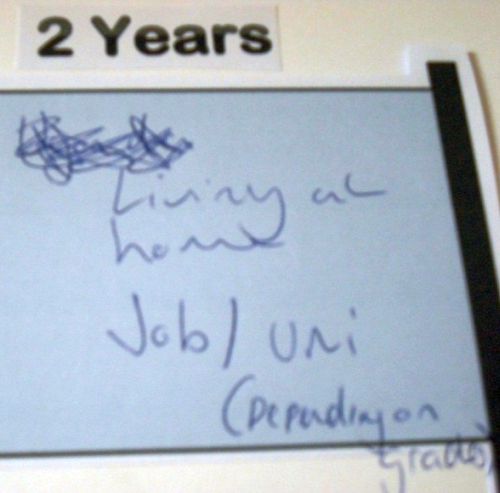 2 Years
Living at
home
Job / Uni
(Depending on
grades)